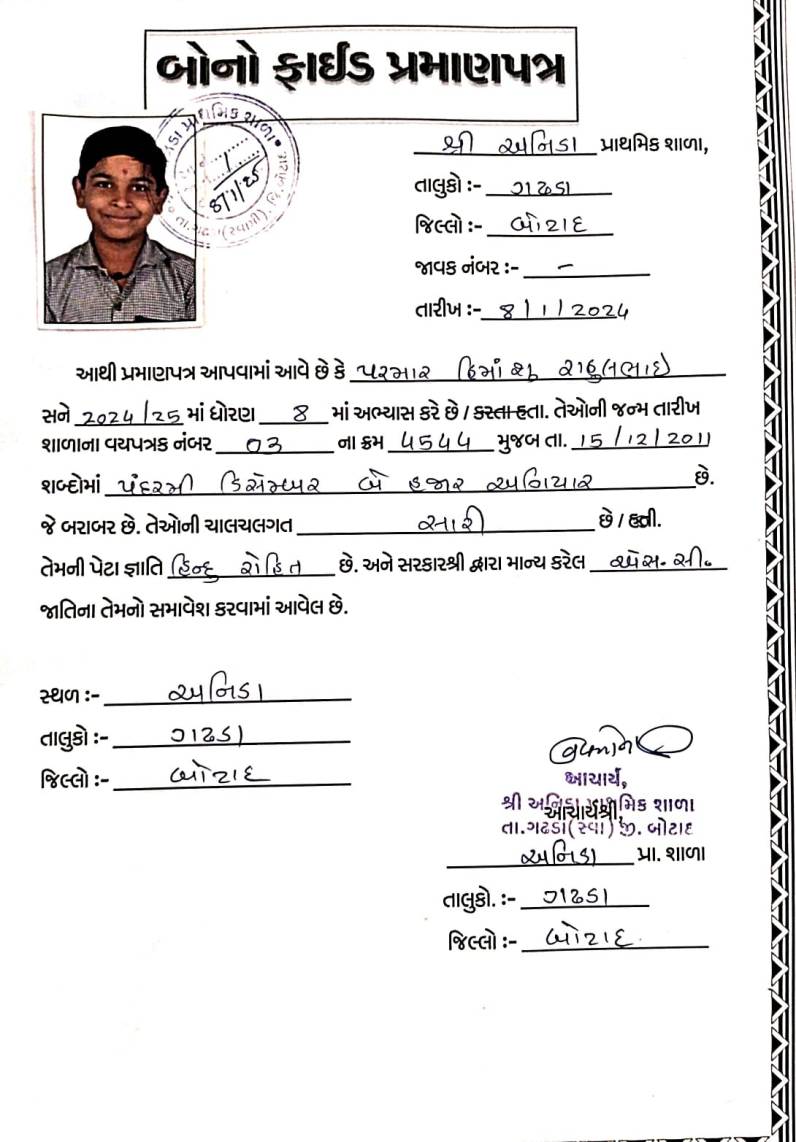 બોનો ફાઈડ પ્રમાણપત્ર
શ્રી અનિડા પ્રાથમિક શાળા,
તાલુકો :- ગઢડા
જિલ્લો :- બોટાદ
જાવક નંબર :- –
તારીખ :- 8/1/2024
8/1/25
આથી પ્રમાણપત્ર આપવામાં આવે છે કે પરમાર હિમાંશુ રાહુલભાઈ
સને 2024/25 માં ધોરણ 8 માં અભ્યાસ કરે છે / કરતા હતા. તેઓની જન્મ તારીખ
શાળાના વયપત્રક નંબર 03 ના ક્રમ ૫૪૪ મુજબ તા. 15/12/2011
શબ્દોમાં પંદરમી ડિસેમ્બર બે હજાર અગિયાર છે.
જે બરાબર છે. તેઓની ચાલચલગત સારી છે / હતી.
તેમની પેટા જ્ઞાતિ હિન્દુ રોહિત છે. અને સરકારશ્રી દ્વારા માન્ય કરેલ એસ.સી.
જાતિના તેમનો સમાવેશ કરવામાં આવેલ છે.
સ્થળ :- અનિડા
તાલુકો :- ગઢડા
જિલ્લો :- બોટાદ
આચાર્ય,
શ્રી અનિડા પ્રાથમિક શાળા
આચાર્યશ્રી,
તા.ગઢડા(સ્વા) જી. બોટાદ
અનિડા પ્રા. શાળા
તાલુકો. :- ગઢડા
જિલ્લો :- બોટાદ